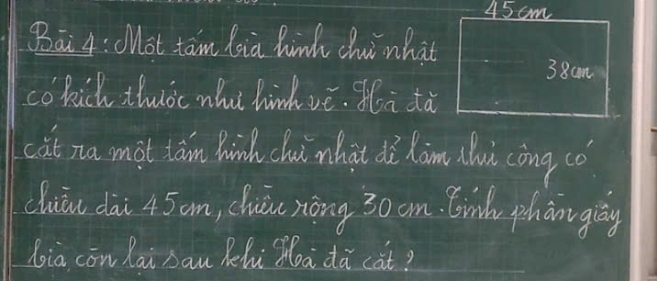 45cm
Bài 4: Một tấm bìa hình chữ nhật
38cm
có kích thước như hình vẽ. Hà đã
cắt ra một tấm hình chữ nhật để làm thủ công có
chiều dài 45cm, chiều rộng 30cm. Tính phần giấy
bìa còn lại sau khi Hà đã cắt?